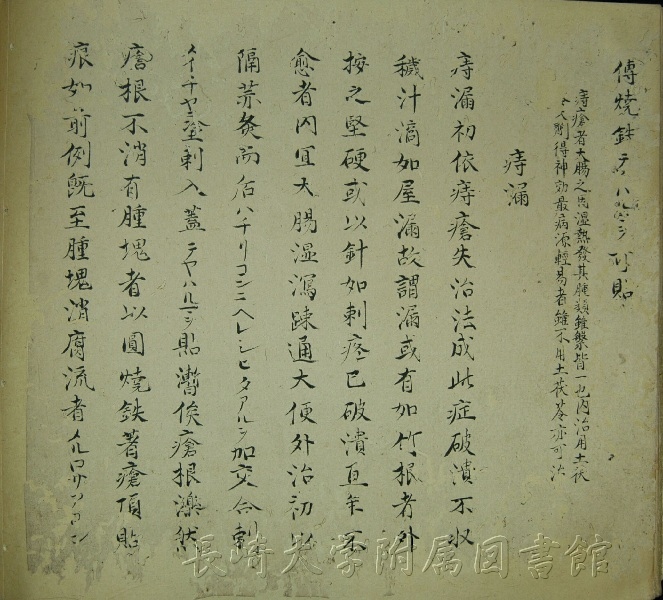 傳燒鉄テヤハルニシ
痔瘡者大腸之
湿熱發其腫類雖繁皆一也内治用土茯
則得神効最病源輕易者雖不用土茯苓亦可決
痔漏
痔漏初依痔瘡失治法成此症破潰不収
穢汁滴如屋漏故謂漏或有如竹根者外
按之堅硬或以針如刺疼已破潰亘年不
愈者内宜大腸湿瀉疎通大便外治初以
隔蒜灸而后ハチリコンニヘレシヒタアルヲ加交合剿
塗刺入蓋テヤハルニシ貼漸俟瘡根
瘡根不消有腫塊者以圓燒鉄著瘡頂貼
痕如前例既至腫塊消腐流者
長崎大学附属図書館